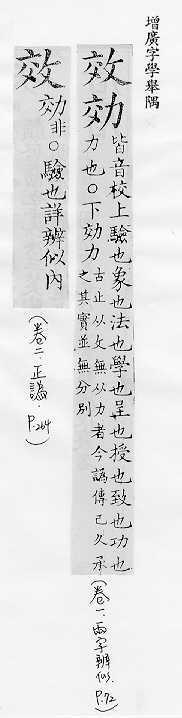 增廣字學舉隅
效効 皆音校上驗也象也法也學也呈也授也致也功也
力也○下効力古止从攵無从力者今譌傳已久承
之其實並無分別
(卷一.兩字辨似.P.72)
效 効非○驗也詳辨似內
(卷二.正譌.P.264)